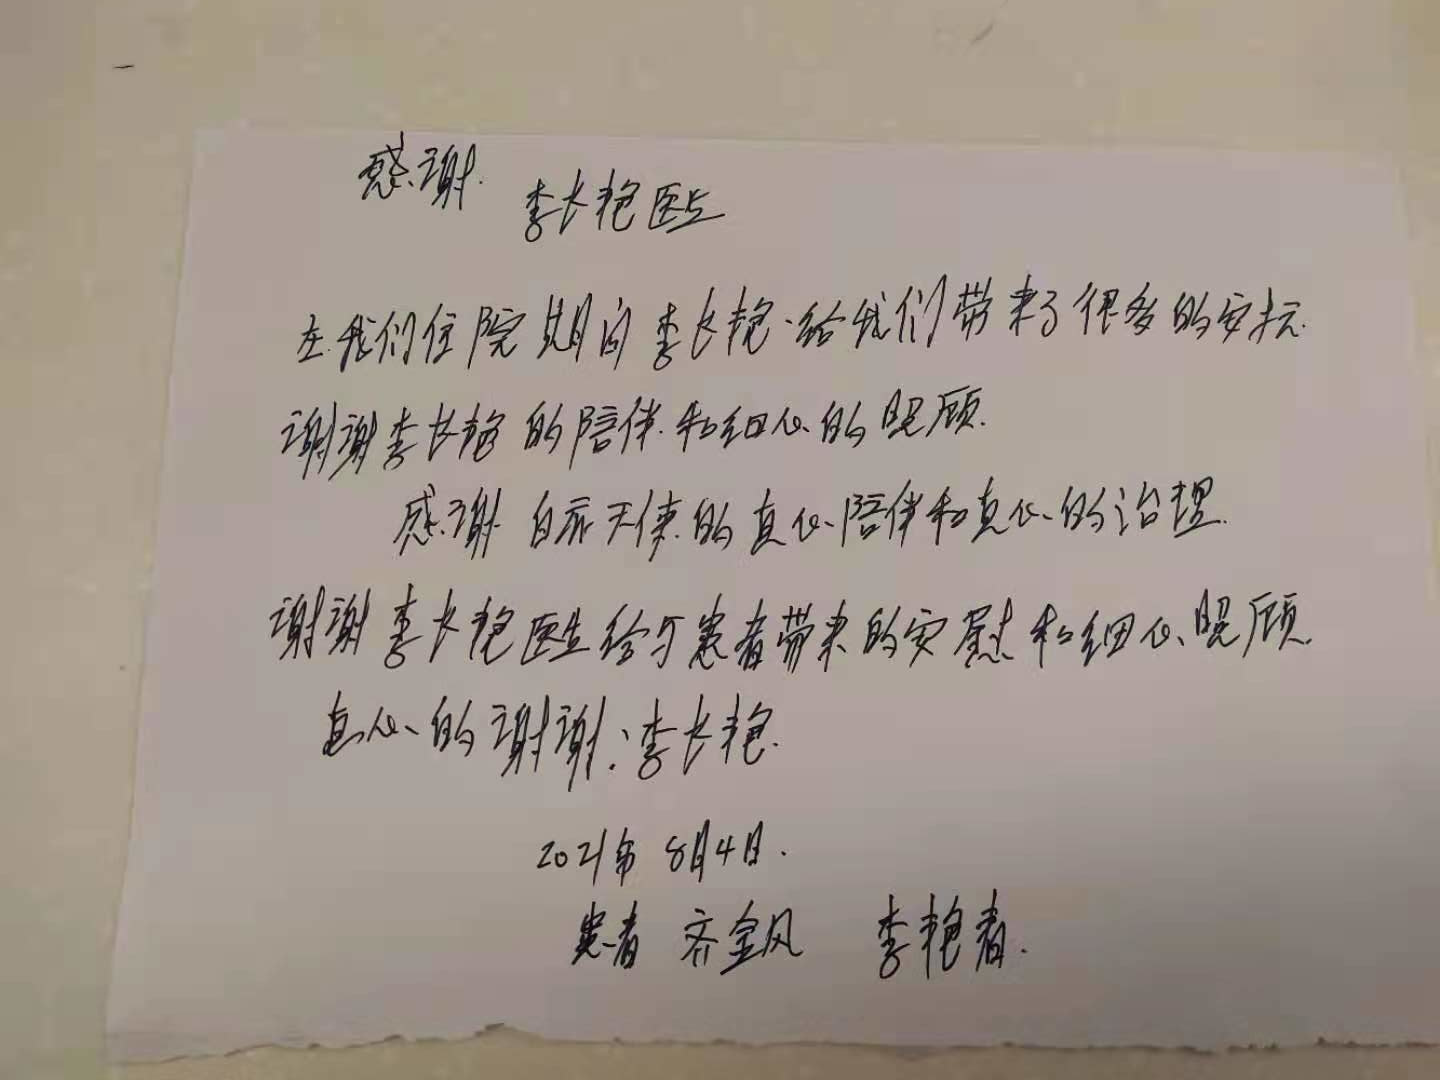 感谢
李长艳医生
在我们住院期间李长艳给我们带来了很多的安抚.
谢谢李长艳的陪伴和细心的照顾.
感谢白衣天使的真心陪伴和真心的治理.
谢谢李长艳医生给与患者带来的安慰和细心照顾.
真心的谢谢:李长艳.
2021年8月4日.
患者 齐金凤 李艳春.